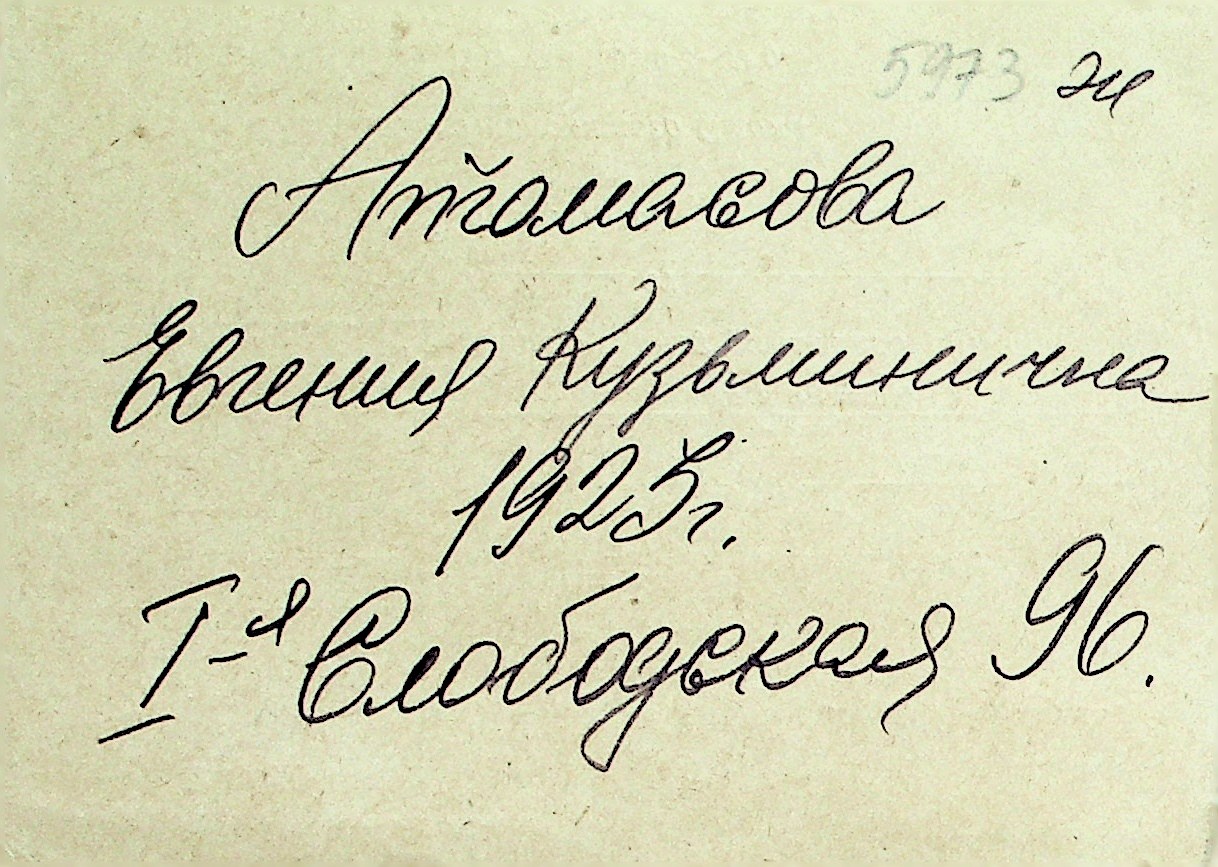 5973 ж
Айгомасова
Евгения Кузьминична
1923г.
I-я Слободская 96.